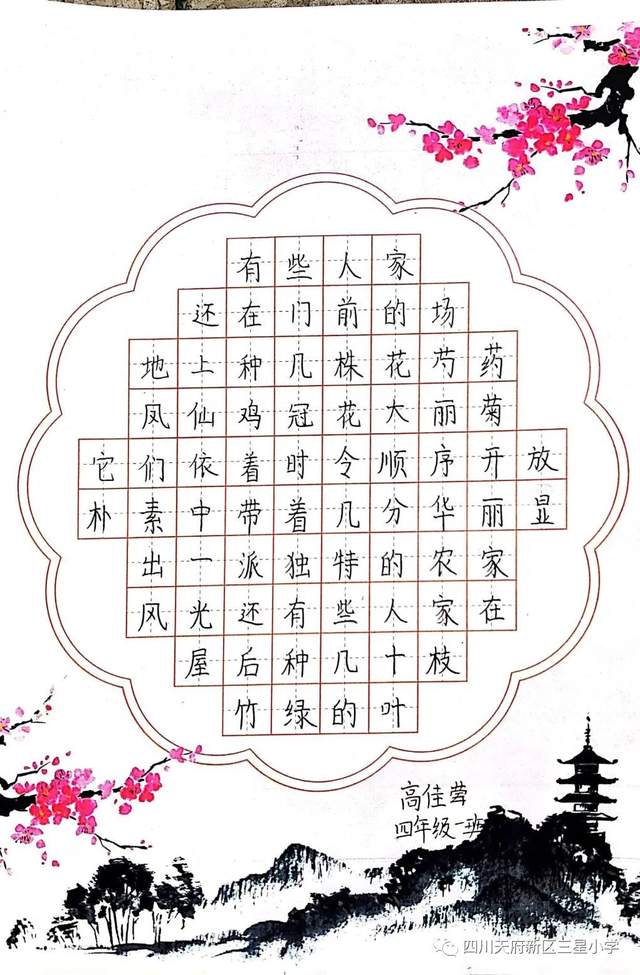 有些人家
还在门前的场
地上种几株花芍药
凤仙鸡冠花大丽菊
它们依着时令顺序开放
朴素中带着几分华丽显
出一派独特的农家
风光还有些人家在
屋后种几十枝
竹绿的叶
高佳莺
四年级一班
四川天府新区三星小学